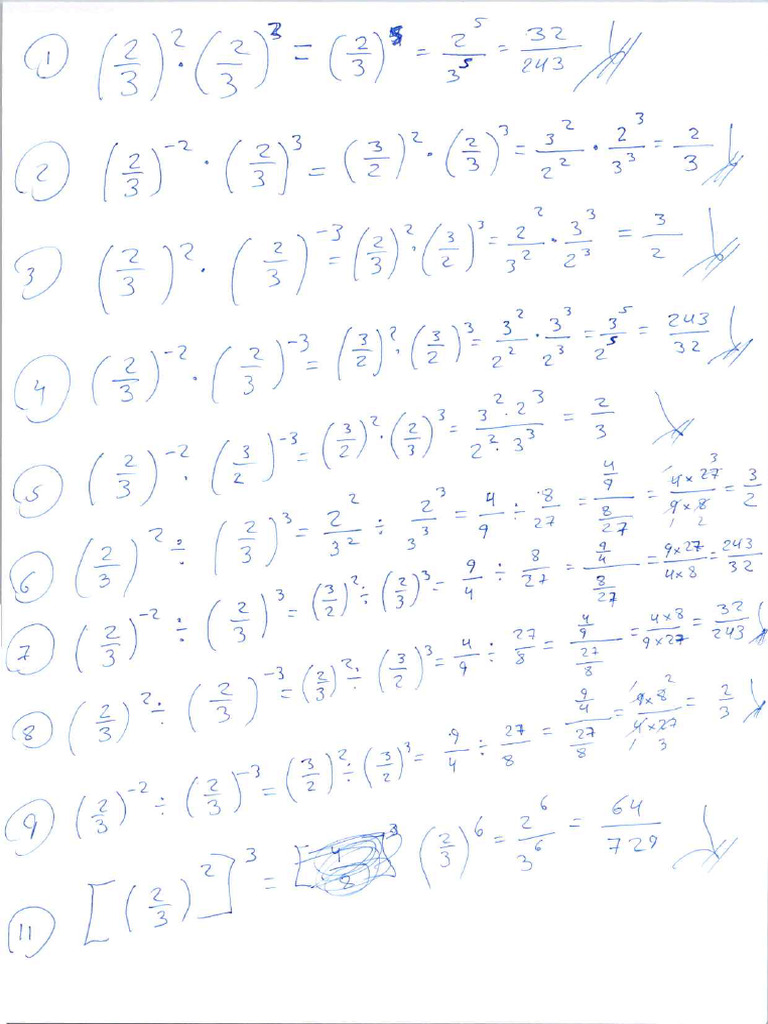 ① (2/3)^2 · (2/3)^3 = (2/3)^5 = 2^5/3^5 = 32/243
② (2/3)^-2 · (2/3)^3 = (3/2)^2 · (2/3)^3 = 3^2/2^2 · 2^3/3^3 = 2/3
③ (2/3)^2 · (2/3)^-3 = (2/3)^2 · (3/2)^3 = 2^2/3^2 · 3^3/2^3 = 3/2
④ (2/3)^-2 · (2/3)^-3 = (3/2)^2 · (3/2)^3 = 3^2/2^2 · 3^3/2^3 = 3^5/2^5 = 243/32
⑤ (2/3)^-2 · (3/2)^-3 = (3/2)^2 · (2/3)^3 = 3^2 · 2^3/2^2 · 3^3 = 2/3
⑥ (2/3)^2 ÷ (2/3)^3 = 2^2/3^2 ÷ 2^3/3^3 = 4/9 ÷ 8/27 = 4/9/8/27 = 4×27/9×8 = 3/2
⑦ (2/3)^-2 ÷ (2/3)^3 = (3/2)^2 ÷ (2/3)^3 = 9/4 ÷ 8/27 = 9/4/8/27 = 9×27/4×8 = 243/32
⑧ (2/3)^2 ÷ (2/3)^-3 = (2/3)^2 ÷ (3/2)^3 = 4/9 ÷ 27/8 = 4/9/27/8 = 4×8/9×27 = 32/243
⑨ (2/3)^-2 ÷ (2/3)^-3 = (3/2)^2 ÷ (3/2)^3 = 9/4 ÷ 27/8 = 9/4/27/8 = 9×8/4×27 = 2/3
⑪ [(2/3)^2]^3 = (2/3)^6 = 2^6/3^6 = 64/729